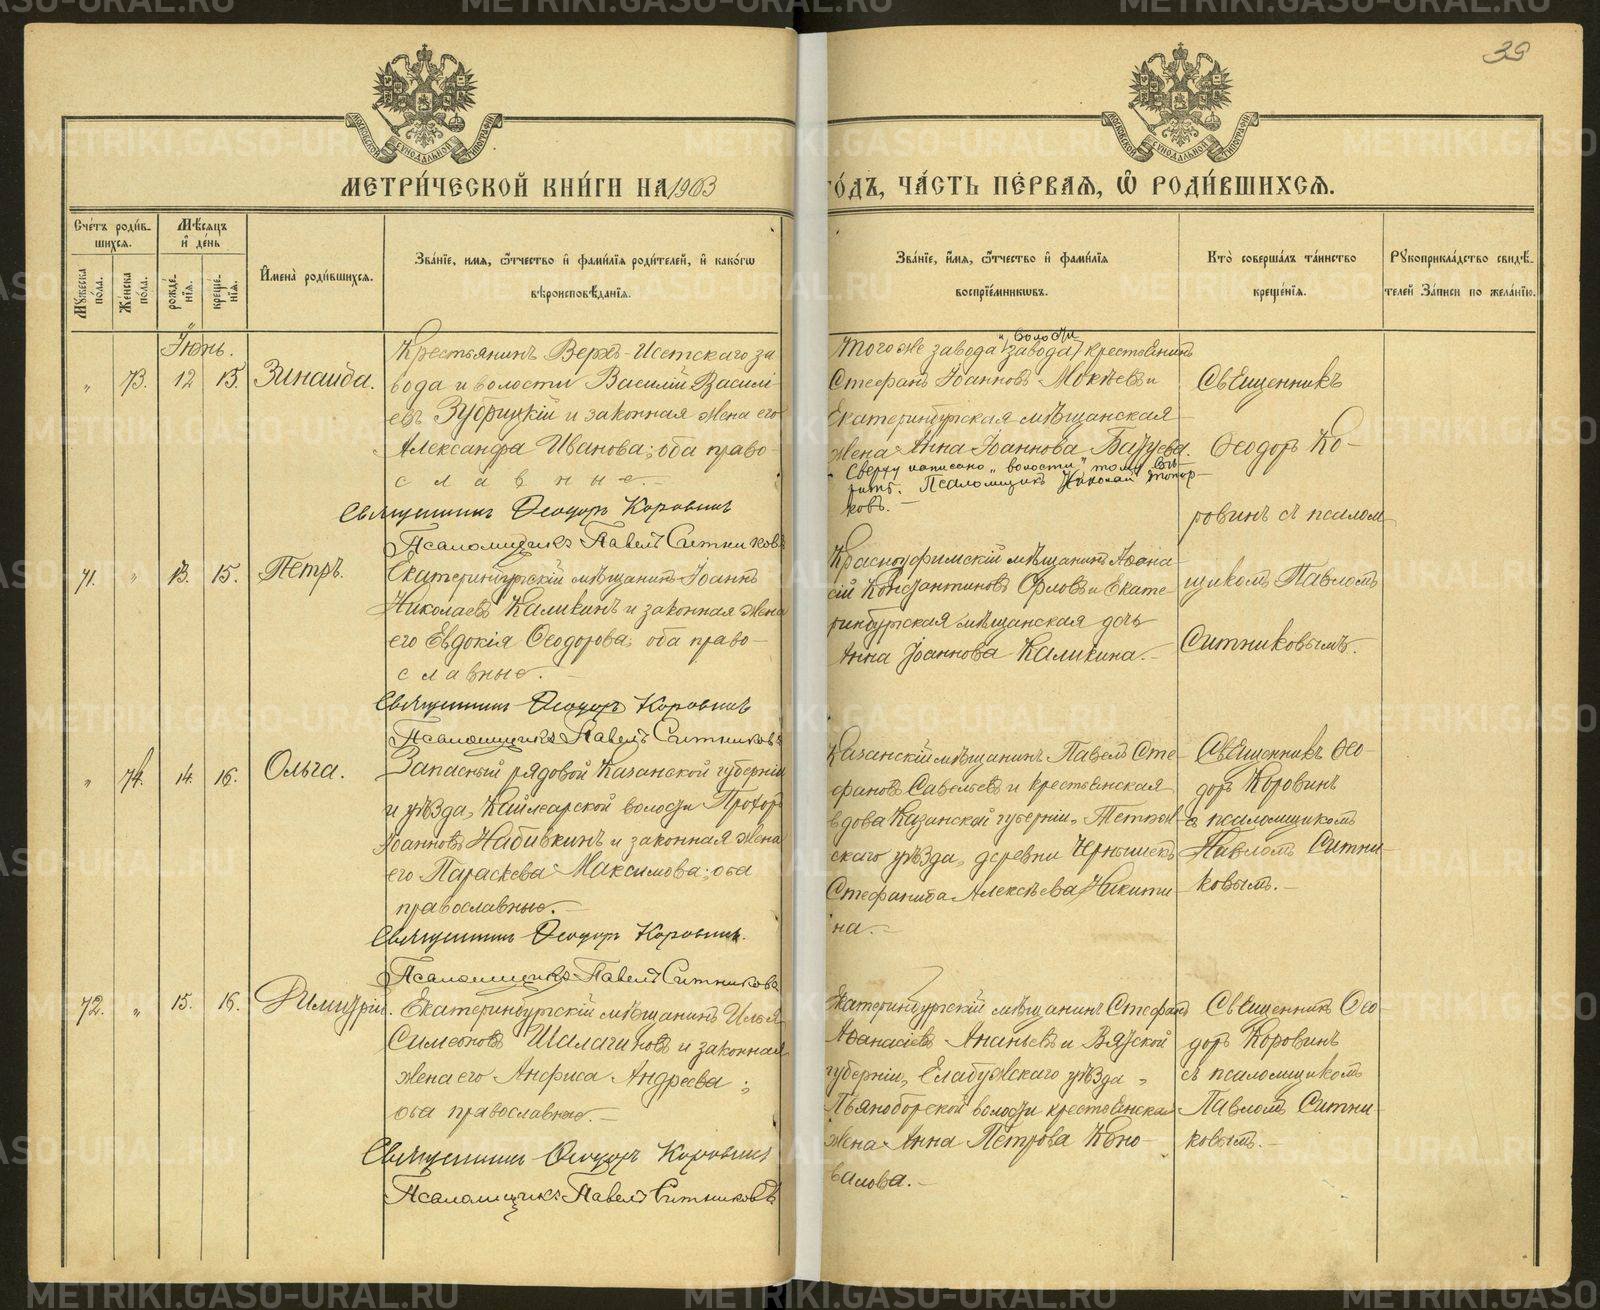 39
МОСКОВСКОЙ СѴНОДАЛЬНОЙ ТИПОГРАФІИ
МОСКОВСКОЙ СѴНОДАЛЬНОЙ ТИПОГРАФІИ
МЕТРИ́ЧЕСКОЙ КНИ́ГИ НА 1903
ГО́ДЪ, ЧА́СТЬ ПЕ́РВАѦ, Ѽ РОДИ́ВШИХСѦ.
Сче́тъ роди́в-
шихсѧ.
Мѣ́сѧцъ
и҆ де́нь
Мꙋ́жеска по́ла.
Же́нска по́ла.
рожде́-
нїѧ.
креще́-
нїѧ.
И҆мена̀ роди́вшихсѧ.
Зва́нїе, и́мѧ, ѻ҆́тчество и҆ фами́лїѧ роди́телей, и҆ како́гѡ
вѣроисповѣ́данїѧ.
Зва́нїе, и҆́мѧ, ѻ҆́тчество и҆ фами́лїѧ
воспрїе́мникѡвъ.
Кто̀ соверша́лъ та́инство
креще́нїѧ.
Рꙋкоприкла́дство свидѣ́-
телей За́писи по жела́нїю.
Іюнь.
" 73. 12 15. Зинаида.
Крестьянинъ Верхъ-Исетскаго за
вода и волости Василій Василі-
евъ Зубрицкій и законная жена его
Александра Иванова; оба право-
славные.-
Священникъ Ѳеодоръ Коровинъ
Псаломщикъ Павелъ Ситниковъ
"волости
того же завода (завода) крестьянинъ
Стефанъ Іоанновъ Мокѣевъ и
Екатеринбургская мѣщанская
жена Анна Іоаннова
Сверху написано "волости" тому вѣ-
рить. Псаломщикъ Николай Топор-
ковъ.-
Священникъ
Ѳеодоръ Ко-
ровинъ съ псалом
щикомъ Павломъ
Ситниковымъ.
71. " 13. 15. Петръ.
Екатеринбургскій мѣщанинъ Іоаннъ
Николаевъ Каликинъ и законная жена
его Евдокія Ѳеодорова; оба право-
славные.-
Священникъ Ѳеодоръ Коровинъ
Псаломщикъ Павелъ Ситниковъ
Красноуфимскій мѣщанинъ Аѳана-
сій Константиновъ Орловъ и Екате-
ринбургская мѣщанская дочь
Анна Іоаннова Каликина.-
" 74. 14. 16. Ольга.
Запасный рядовой Казанской губерніи
и уѣзда, волости Прохоръ
Іоанновъ Набивкинъ и законная жена
его Параскева Максимова; оба
православные.-
Священникъ Ѳеодоръ Коровинъ.
Псаломщикъ Павелъ Ситниковъ
Казанскій мѣщанинъ Павелъ Сте-
фановъ Савельевъ и крестьянская
вдова Казанской губерніи,
скаго уѣзда, деревни
Стефанида Алексѣева Никити
на.-
Священникъ Ѳео-
доръ Коровинъ
съ псаломщикомъ
Павломъ Ситни-
ковымъ.-
72. " 15. 16. Димитрій.
Екатеринбургскій мѣщанинъ Илья
Симеоновъ Шалагиновъ и законная
жена его Анфиса Андреева;
оба православные.-
Священникъ Ѳеодоръ Коровинъ
Псаломщикъ Павелъ Ситниковъ
Екатеринбургскій мѣщанинъ Стефанъ
Аѳанасіевъ Ананьевъ и Вятской
губерніи, Елабужскаго уѣзда,
Пьяноборской волости крестьянская
жена Анна Петрова Коно-
валова.-
Священникъ Ѳео
доръ Коровинъ
съ псаломщикомъ
Павломъ Ситни-
ковымъ.-
METRIKI.GASO-URAL.RU